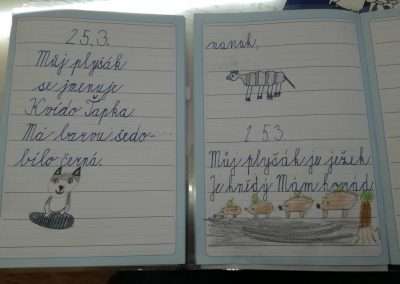 25.3.
Můj plyšák
se jmenuje
Kvído Ťapka
Má barvu šedo-
bílo černá.
nanuk,
25.3.
Můj plyšák je ježek
Je hnědý Mám